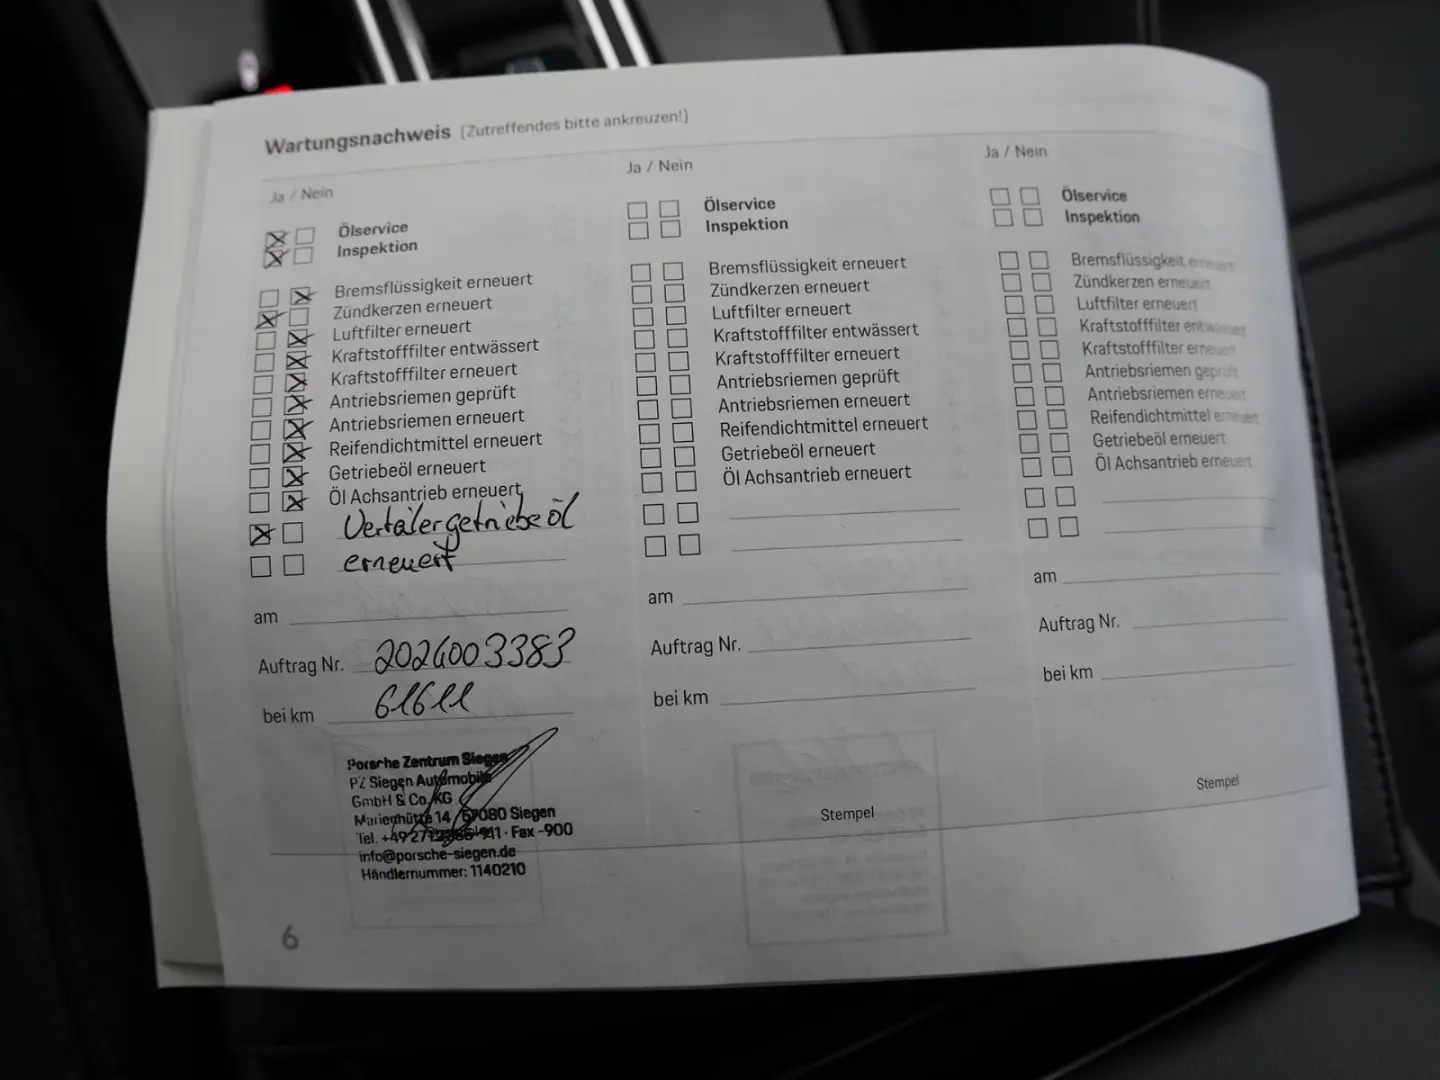 Wartungsnachweis (Zutreffendes bitte ankreuzen!)
Ja / Nein
Ölservice
Inspektion
Bremsflüssigkeit erneuert
Zündkerzen erneuert
Luftfilter erneuert
Kraftstofffilter entwässert
Kraftstofffilter erneuert
Antriebsriemen geprüft
Antriebsriemen erneuert
Reifendichtmittel erneuert
Getriebeöl erneuert
Öl Achsantrieb erneuert
Vertälergetriebeöl
erneuert
am
Auftrag Nr. 2024003383
bei km 61611
Porsche Zentrum Siegen
PZ Siegen Automobile
GmbH & Co. KG
Marienhütte 14 57080 Siegen
Tel. +49 271 -911 · Fax -900
info@porsche-siegen.de
Händlernummer: 1140210
6
Ja / Nein
Ölservice
Inspektion
Bremsflüssigkeit erneuert
Zündkerzen erneuert
Luftfilter erneuert
Kraftstofffilter entwässert
Kraftstofffilter erneuert
Antriebsriemen geprüft
Antriebsriemen erneuert
Reifendichtmittel erneuert
Getriebeöl erneuert
Öl Achsantrieb erneuert
am
Auftrag Nr.
bei km
Stempel
Ja / Nein
Ölservice
Inspektion
Bremsflüssigkeit erneuert
Zündkerzen erneuert
Luftfilter erneuert
Kraftstofffilter entwässert
Kraftstofffilter erneuert
Antriebsriemen geprüft
Antriebsriemen erneuert
Reifendichtmittel erneuert
Getriebeöl erneuert
Öl Achsantrieb erneuert
am
Auftrag Nr.
bei km
Stempel